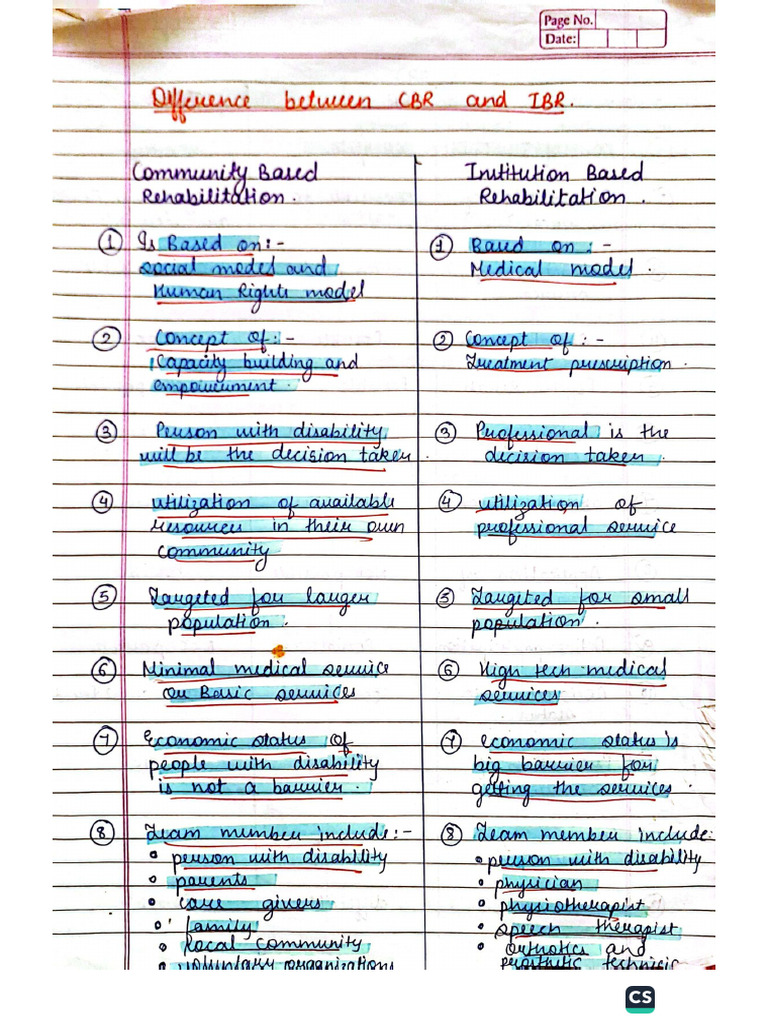 Page No.
Date:
Difference between CBR and IBR.
Community Based
Rehabilitation.
① Is Based on:-
social model and
Human Rights model
② Concept of:-
Capacity building and
empowerment.
③ Person with disability
will be the decision taker.
④ utilization of available
resources in their own
community
⑤ Targeted for larger
population.
⑥ Minimal medical service
or Basic services
⑦ Economic status of
people with disability
is not a barrier.
⑧ Team member include:-
• person with disability
• parents
• care givers
• family
• local community
• voluntary organizations
Institution Based
Rehabilitation.
① Based on:-
Medical model.
② Concept of:-
Treatment prescription.
③ Professional is the
decision taker.
④ utilization of
professional service
⑤ Targeted for small
population.
⑥ High tech medical
services
⑦ economic status is
big barrier for
getting the services.
⑧ Team member include:
• person with disability
• physician
• physiotherapist
• speech therapist
• orthotics and
prosthetic technician
CS